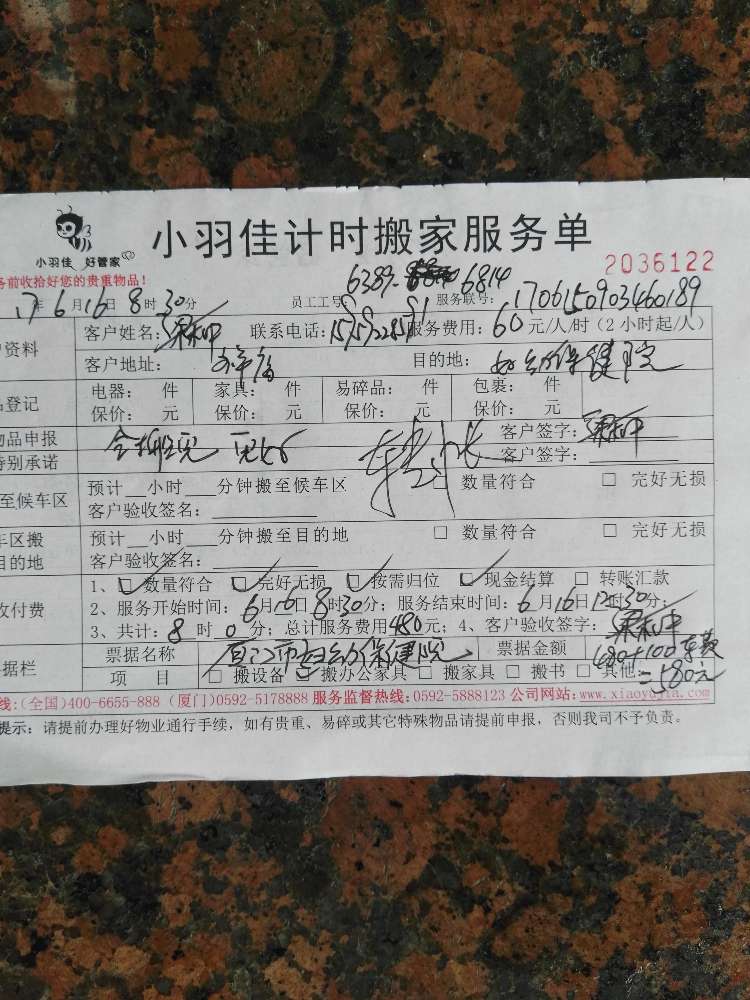 小羽佳 好管家
小羽佳计时搬家服务单
2036122
务前收拾好您的贵重物品！
17年6月16日8时30分 员工工号: 6389 6814 服务联号: 1706150903460189
资料 客户姓名: 联系电话: 服务费用: 60元/人/时(2小时起/人)
客户地址: 目的地: 妇幼保健院
登记 电器: 件 家具: 件 易碎品: 件 包裹: 件
保价: 元 保价: 元 保价: 元 保价: 元
物品申报 客户签字:
特别承诺 客户签字:
至候车区 预计 小时 分钟搬至候车区 □ 数量符合 □ 完好无损
客户验收签名:
车区搬 预计 小时 分钟搬至目的地 □ 数量符合 □ 完好无损
目的地 客户验收签名:
收付费 1、☑数量符合 ☑完好无损 ☑按需归位 ☑现金结算 □ 转账汇款
2、服务开始时间: 6月16日8时30分; 服务结束时间: 6月16日12时30分;
3、共计: 8时0分; 总计服务费用480元; 4、客户验收签字:
据栏 票据名称 厦门市妇幼保健院 票据金额 480+100车费=580元
项 目 □ 搬设备 □ 搬办公家具 □ 搬家具 □ 搬书 □ 其他:
线:(全国)400-6655-888 (厦门)0592-5178888 服务监督热线:0592-5888123 公司网站:www.xiaoyujia.com
提示: 请提前办理好物业通行手续，如有贵重、易碎或其它特殊物品请提前申报，否则我司不予负责。